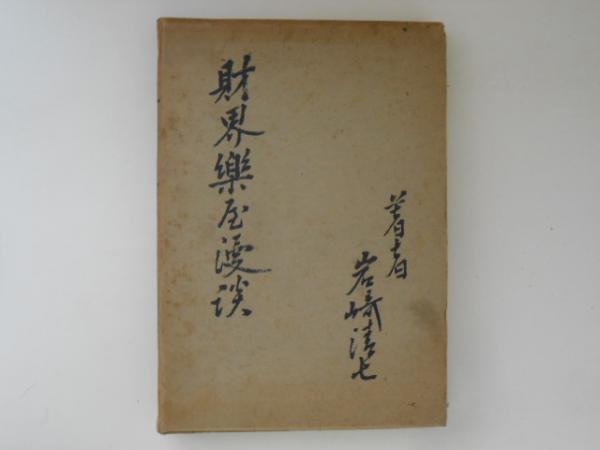 著者
岩崎清七
財界樂屋漫談